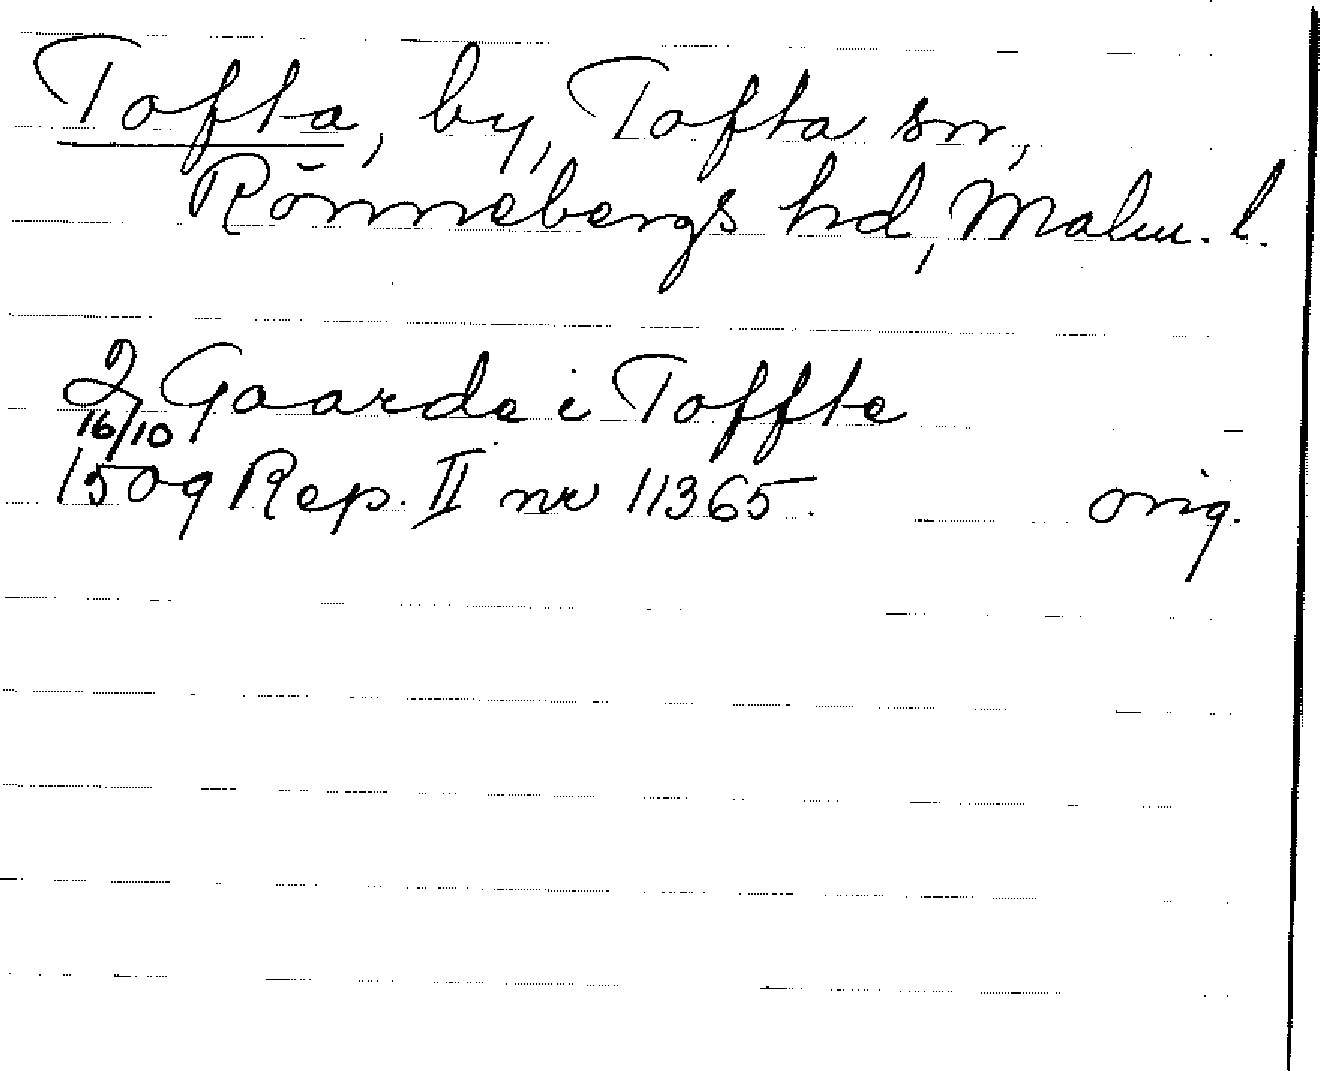 Tofta, by, Tofta sn,
Rönnebergs hd, Malm. l.
2 Gaarde i Toffte
16/10
1509 Rep. II nr 11365. orig.